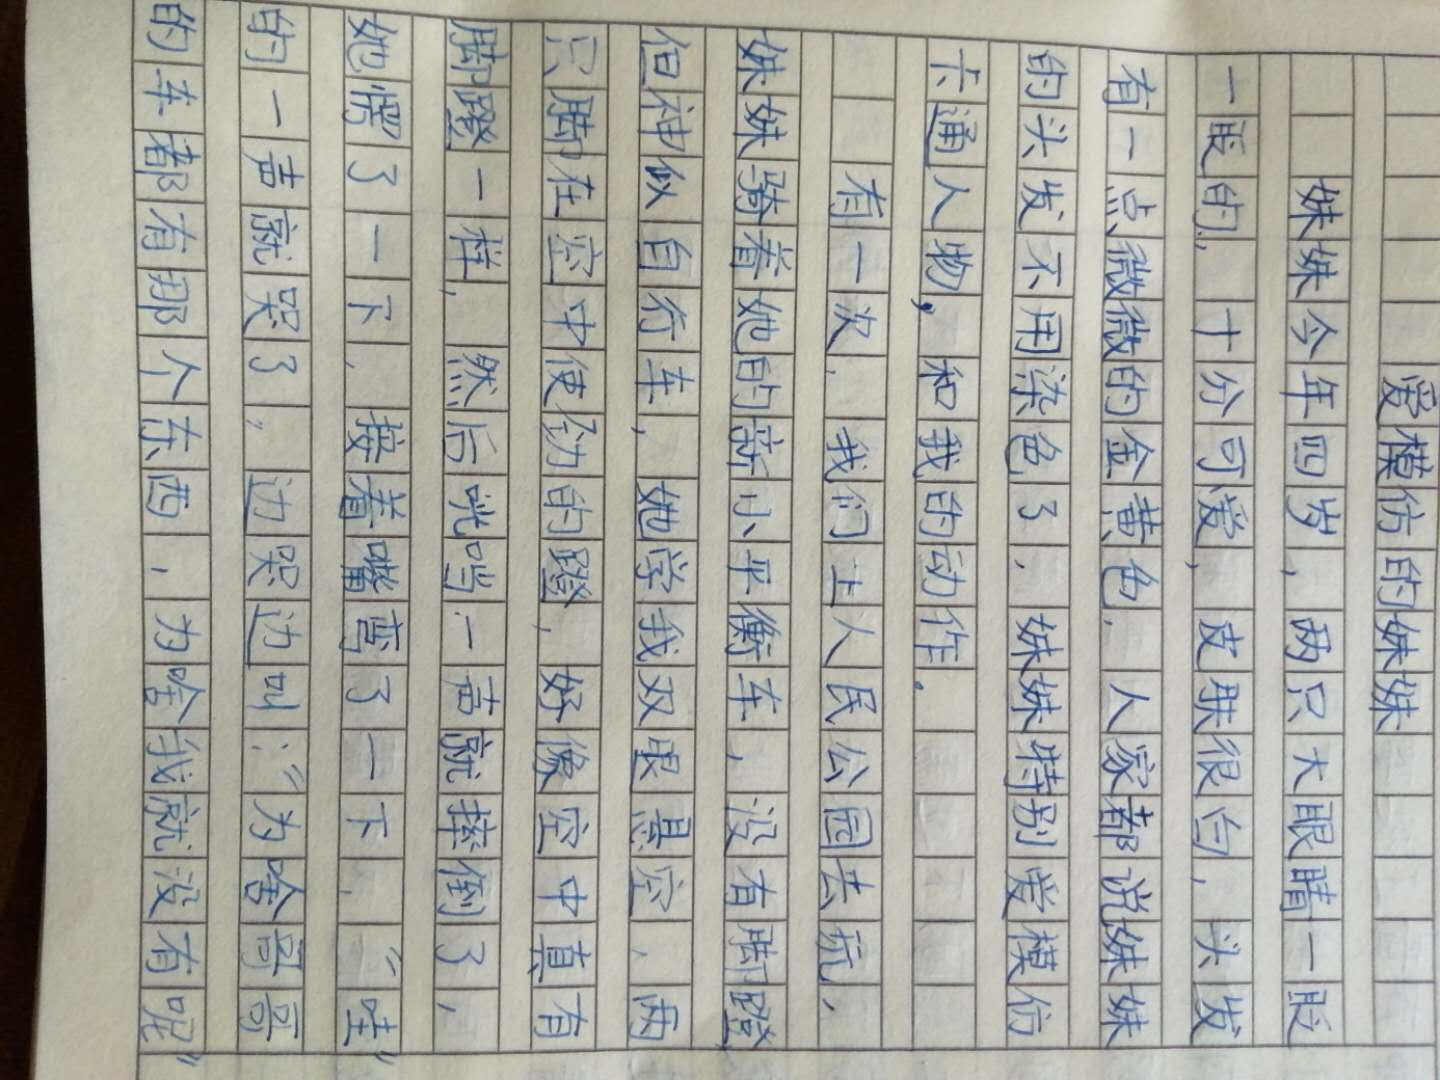 爱模仿的妹妹
妹妹今年四岁，两只大眼睛一眨
一眨的，十分可爱，皮肤很白，头发
有一点微微的金黄色，人家都说妹妹
的头发不用染色了，妹妹特别爱模仿
卡通人物，和我的动作。
有一次，我们上人民公园去玩，
妹妹骑着她的新小平衡车，没有脚蹬
但神似自行车，她学我双眼悬空，两
只脚在空中使劲的蹬，好像空中真有
脚蹬一样，然后咣当一声就摔倒了，
她愣了一下，接着嘴弯了一下，“哇”
的一声就哭了，边哭边叫：“为啥哥哥
的车都有那个东西，为啥我就没有呢”